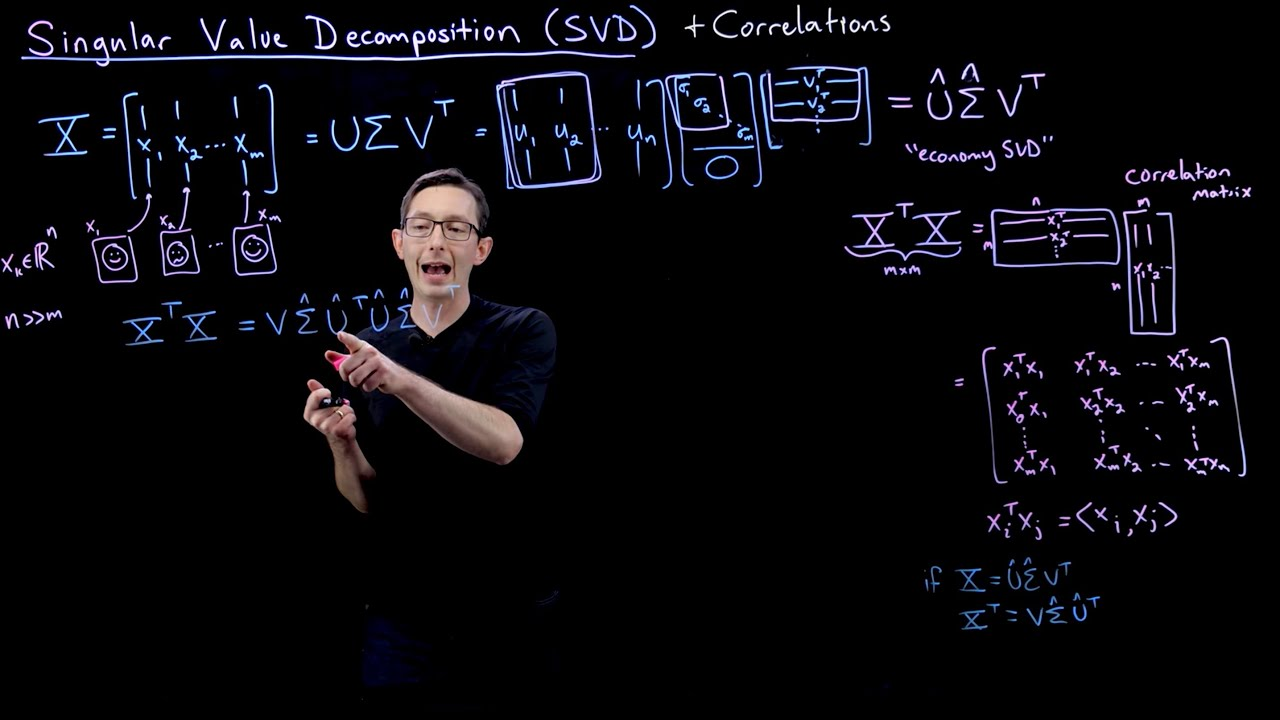 Singular Value Decomposition (SVD) + Correlations
X = [x₁ x₂ ... xₘ] = UΣVᵀ = [u₁ u₂ ... uₙ] [σ₁ σ₂ ⋱ σₘ 0] [v₁ᵀ v₂ᵀ ⋮] = ÛΣ̂Vᵀ
"economy SVD"
x₁ x₂ ... xₘ
xₖ∈ℝⁿ
n>>m
XᵀX = VΣ̂ÛᵀÛΣ̂Vᵀ
correlation
matrix
XᵀX = m n [x₁ᵀ x₂ᵀ ⋮] n m [x₁ x₂ ...]
m×m
= [x₁ᵀx₁ x₁ᵀx₂ ... x₁ᵀxₘ
x₂ᵀx₁ x₂ᵀx₂ ... x₂ᵀxₘ
⋮ ⋮ ⋱ ⋮
xₘᵀx₁ xₘᵀx₂ ... xₘᵀxₘ]
xᵢᵀxⱼ = <xᵢ, xⱼ>
if X = ÛΣ̂Vᵀ
Xᵀ = VΣ̂Ûᵀ